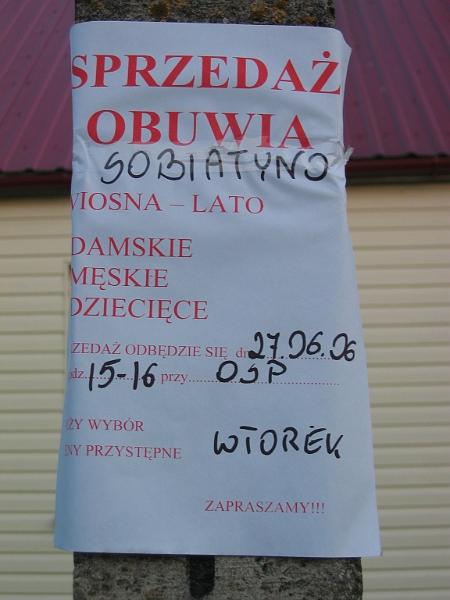 SPRZEDAŻ
OBUWIA
SOBIATYNO
WIOSNA – LATO
DAMSKIE
MĘSKIE
DZIECIĘCE
ZEDAŻ ODBĘDZIE SIĘ dn 27.06.06
dz. 15-16 przy OSP
ŻY WYBÓR
NY PRZYSTĘPNE WTOREK
ZAPRASZAMY!!!